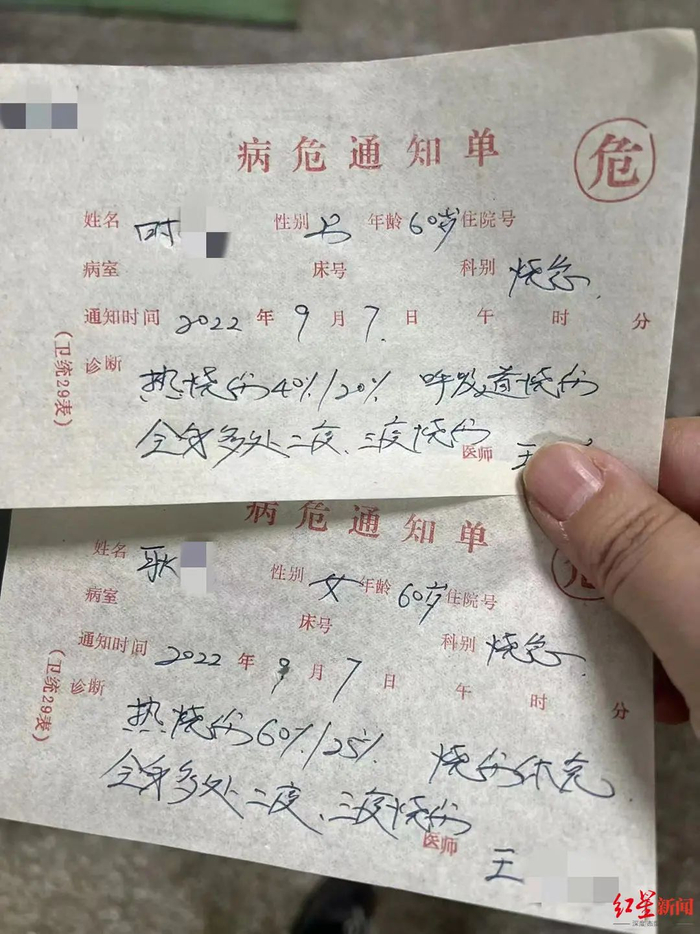 病危通知单
危
姓名 时 性别 男 年龄 60岁 住院号
病室 床号 科别 烧急
通知时间 2022 年 9 月 7 日 午 时 分
诊断 热烧伤40%/20% 呼吸道烧伤
全身多处二度、三度烧伤
医师 王
(卫统29表)
病危通知单
危
姓名 耿 性别 女 年龄 60岁 住院号
病室 床号 科别 烧急
通知时间 2022 年 9 月 7 日 午 时 分
诊断 热烧伤60%/25% 烧伤休克
全身多处二度、三度烧伤
医师 王
(卫统29表)
红星新闻